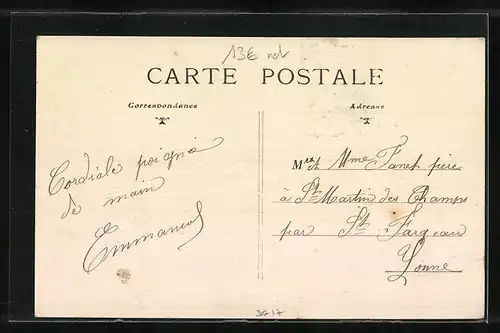 13€ net
CARTE POSTALE
Correspondance
Adresse
Cordiale poigné
de main
Emmanuel
Mr et Mme Fanet père
à St Martin des Champs
par St Fargeau
Yonne
3217